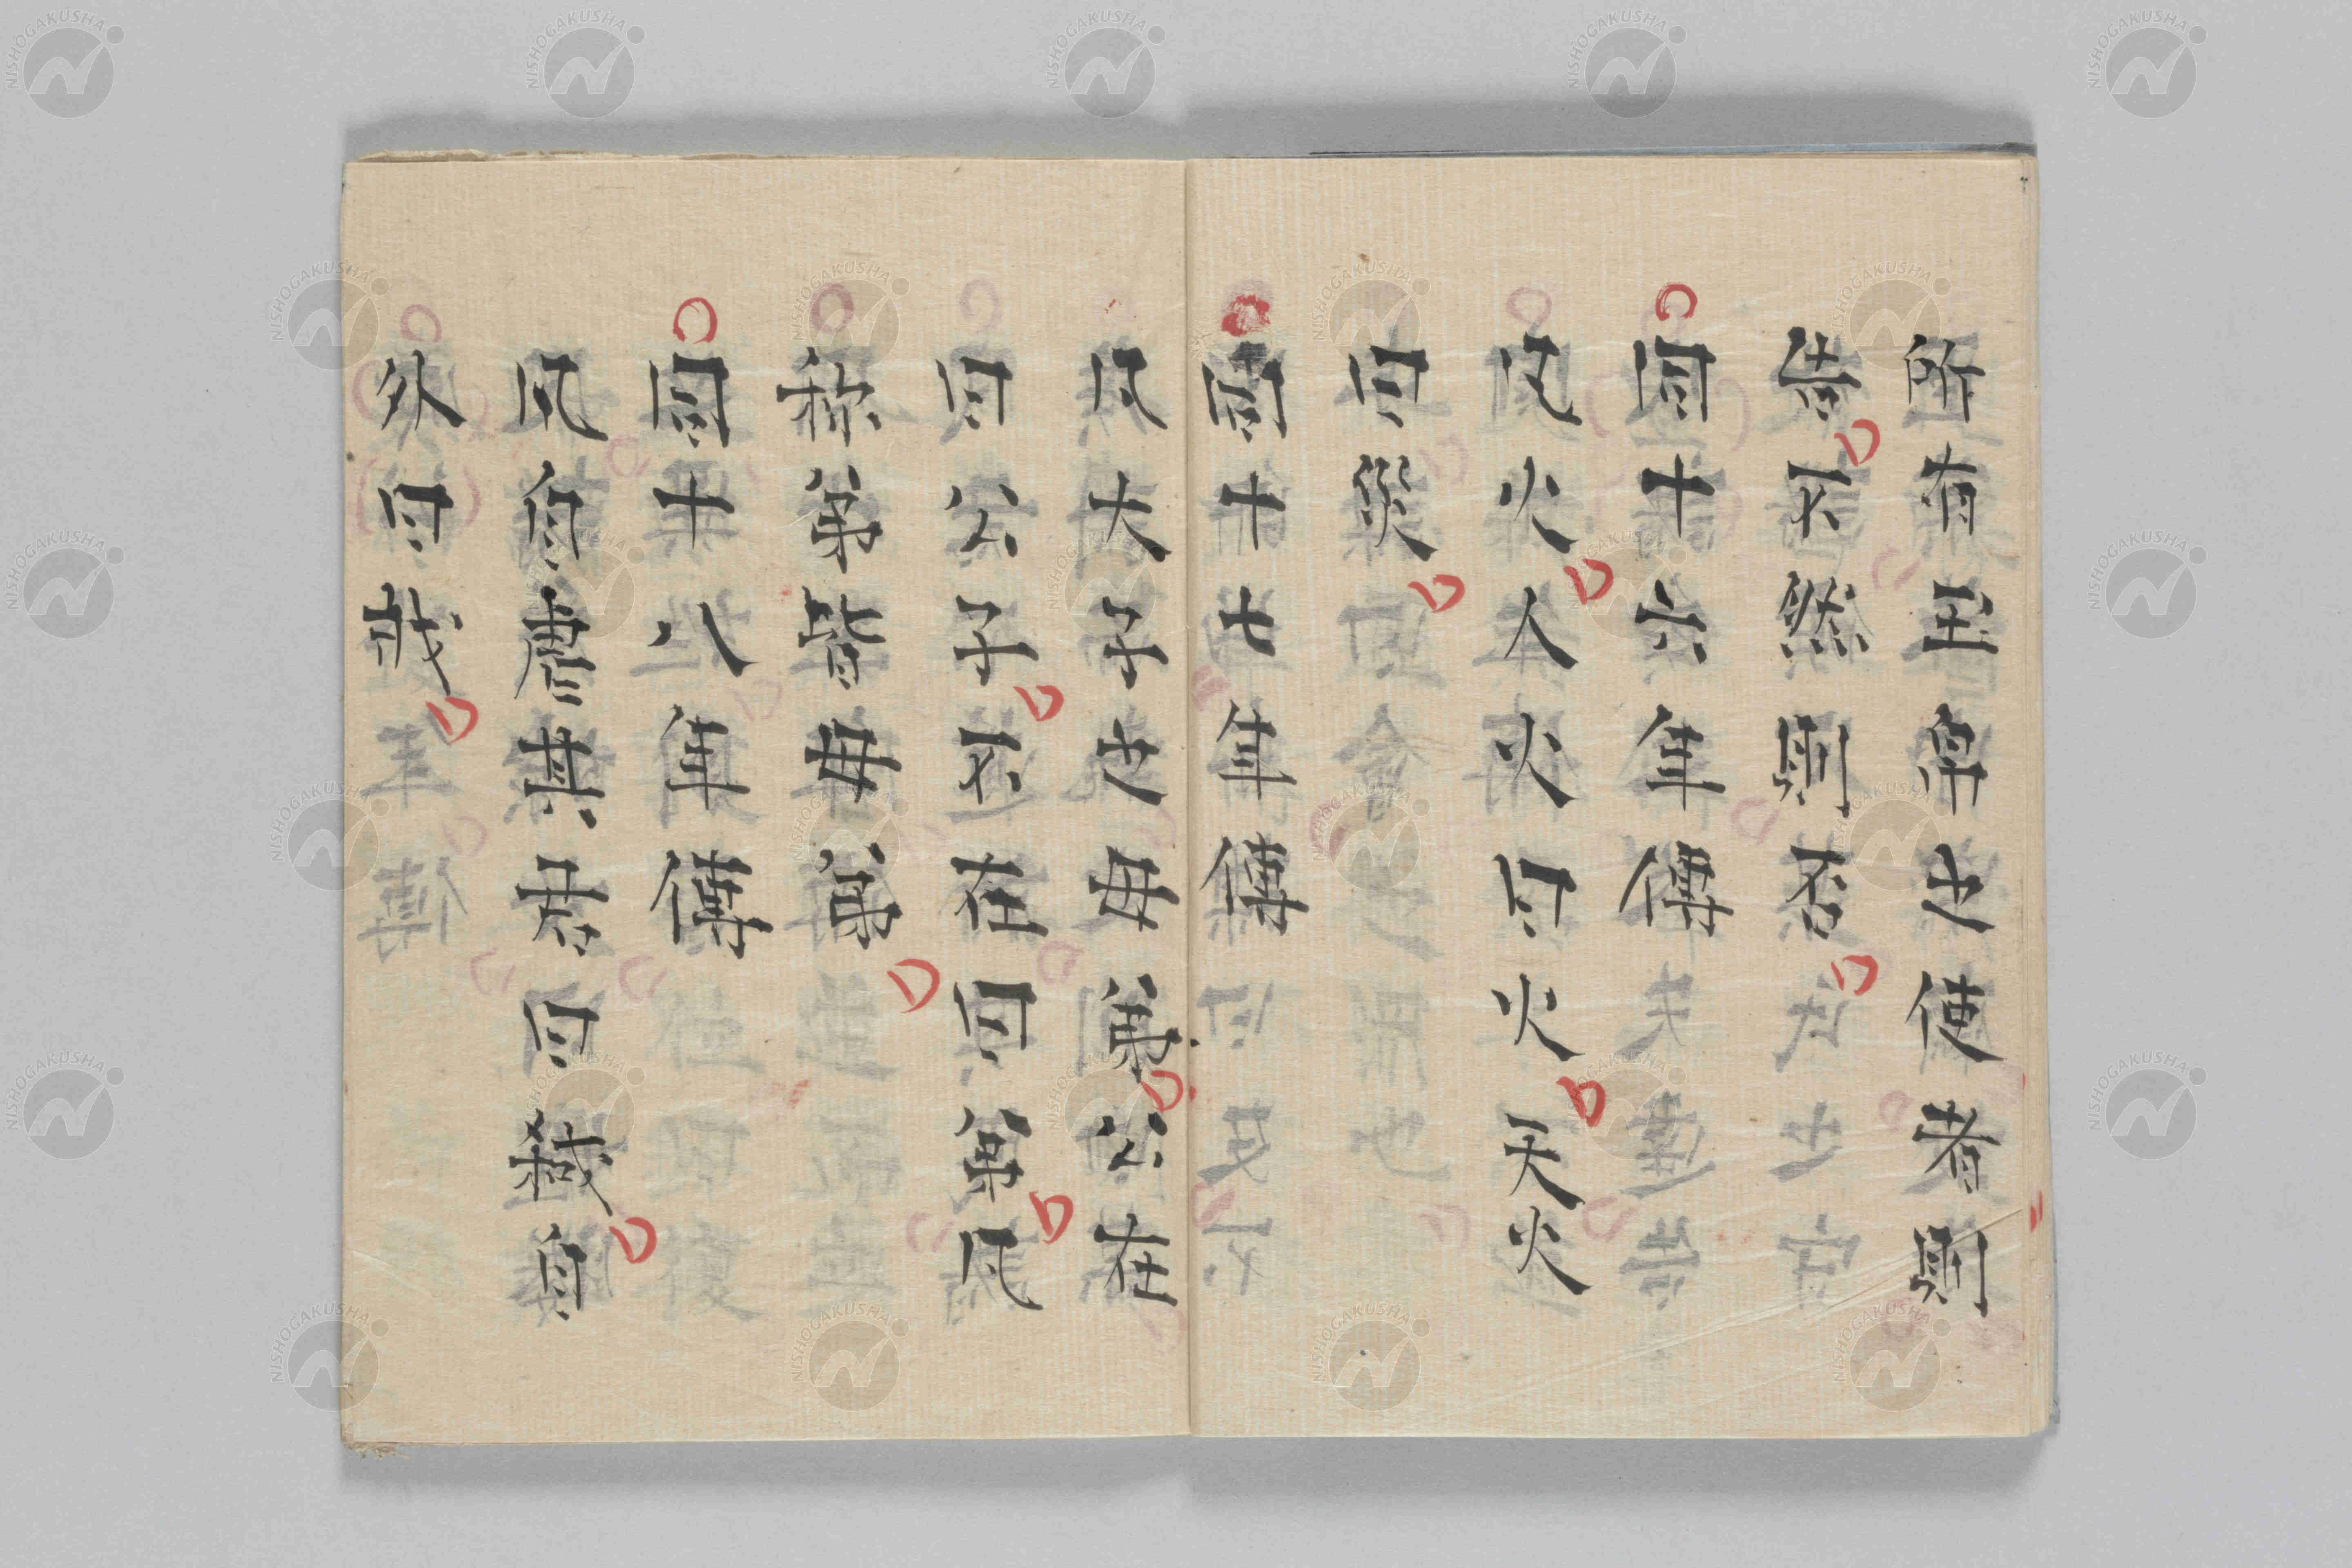 所有玉帛之使者則
告不然則否
同十六年傳
凡火人火曰火天火
曰災
同十七年傳
凡大子之母弟公在
曰公子不在曰弟凡
称弟皆母弟
同十八年傳
凡自虐其君曰弑自
外曰戕
NISHOGAKUSHA